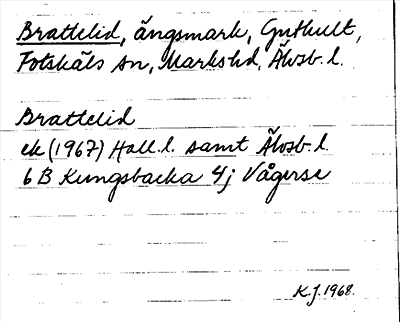 Brattelid, ängsmark, Guthult,
Fotskäls sn, Marks hd, Älvsb. l.
Brattelid
ek (1967) Hall. l. samt Älvsb. l.
6 B Kungsbacka 4j Vågerse
K.J. 1968.